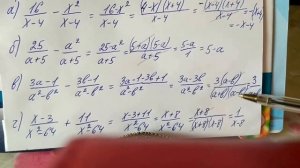 а) 16/x-4 - x²/x-4 = 16-x²/x-4 = (4-x)(x+4)/x-4 = -(x-4)(x+4)/x-4 = -(x+4) = -x-4
б) 25/a+5 - a²/a+5 = 25-a²/a+5 = (5+a)(5-a)/a+5 = 5-a/1 = 5-a
в) 3a-1/a²-b² - 3b-1/a²-b² = 3a-1-3b+1/a²-b² = 3a-3b/a²-b² = 3(a-b)/(a-b)(a+b) = 3/
г) x-3/x²-64 + 11/x²-64 = x-3+11/x²-64 = x+8/x²-64 = x+8/(x+8)(x-8) = 1/x-8